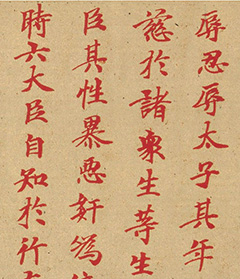 辱忍辱太子其年
慈於諸衆生等生
臣其性暴惡奸偽
時六大臣自知於行